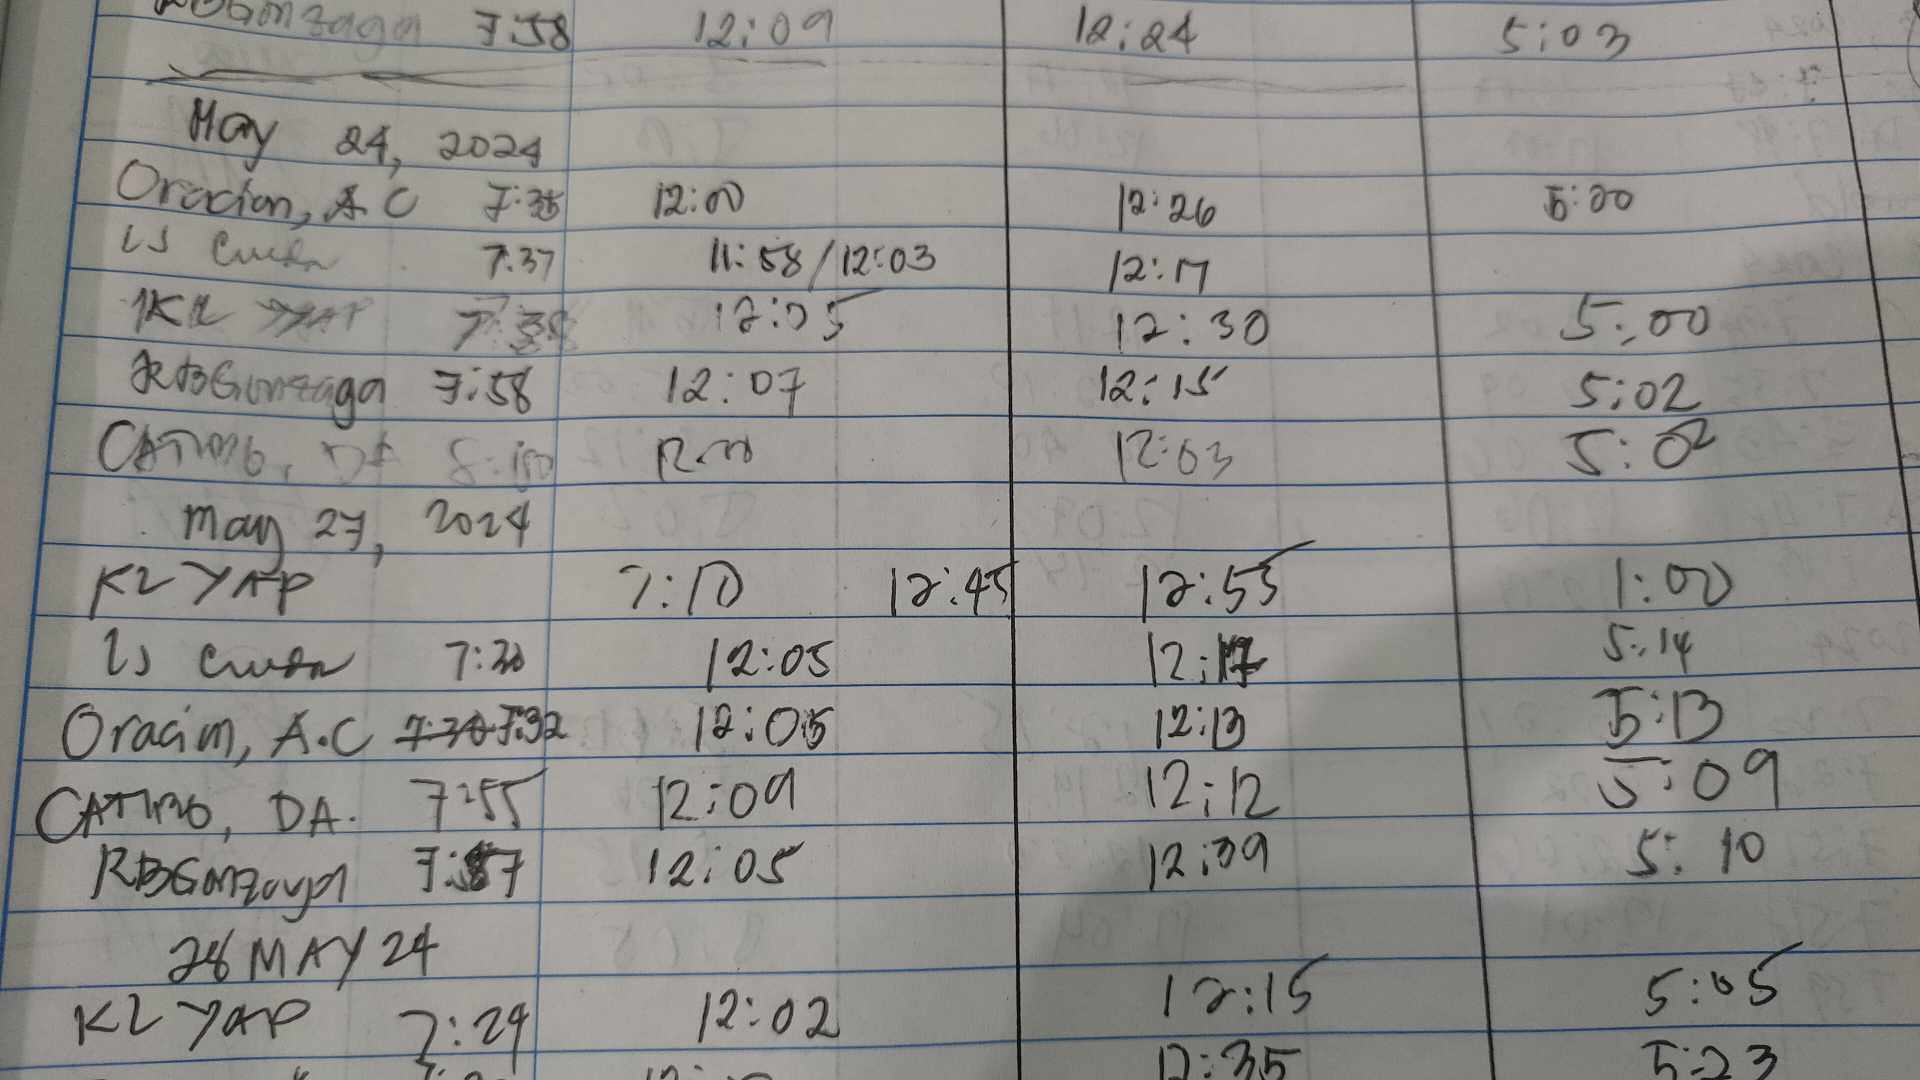 RBGonzaga 7:58 12:09 12:24 5:03
May 24, 2024
Oracion, A.C 7:35 12:00 12:26 5:00
LS 7:37 11:58/12:03 12:17
KL YAP 12:05 12:30 5:00
RBGonzaga 7:58 12:07 12:15 5:02
CATIMO, DA 8:00 12:00 12:03 5:02
May 27, 2024
KL YAP 7:10 12:45 12:55 1:00
LS 7:30 12:05 12:17 5:14
Oracion, A.C 7:32 12:05 12:13 5:13
CATIMO, DA. 7:55 12:09 12:12 5:09
RBGonzaga 7:57 12:05 12:09 5:10
28 MAY 24
KL YAP 7:29 12:02 12:15 5:05
12:35 5:23